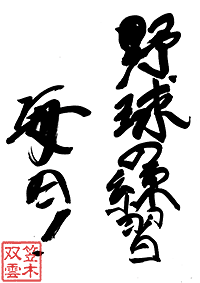 野球の練習
毎日!
笠木
双雲